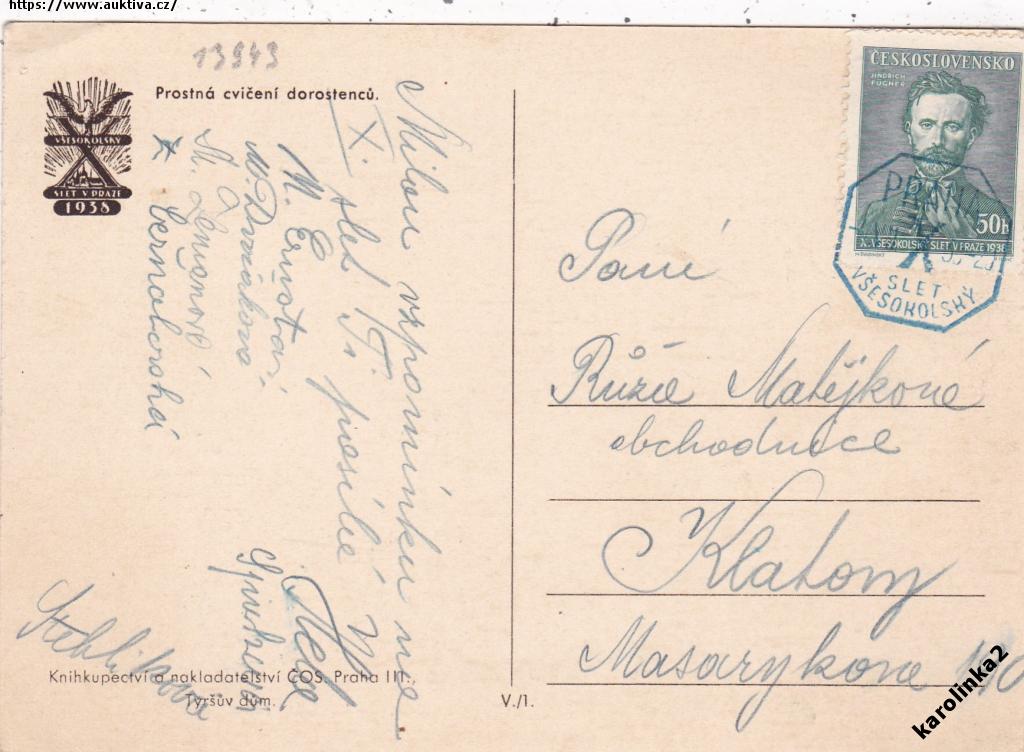 https://www.auktiva.cz/
13943
Prostná cvičení dorostenců.
VŠESOKOLSKÝ
SLET V PRAZE
1938
Milou vzpomínku na
X. slet Ti posílá
M. Dvořáková
Černohorská
Knihkupectví a nakladatelství ČOS. Praha III.,
Tyršův dům.
V./1.
ČESKOSLOVENSKO
JINDŘICH
FÜGNER
50h
X. VŠESOKOLSKÝ SLET V PRAZE 1938
PRAHA
X
SLET
VŠESOKOLSKÝ
Paní
Růže Matějková
obchodnice
Klatovy
Masarykova
karolinka2